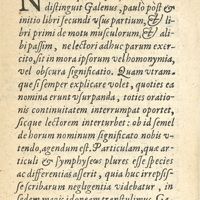 N distinguit Galenus, paulò post &
initio libri secundi usus partium, & li
bri primi de motu musculorum, & ali
bi passim, ne lectori adhuc parum exer
cito, sit in mora ipsorum vel homonymia,
vel obscura significatio. Quàm utram-
que si semper explicare volet, quoties ea
nomina erunt usurpanda, toties oratio-
nis continuitatem interrumpat oportet,
sicque lectorem interturbet: ob id semel
de horum nominum significato nobis v-
tendo, agendum est. Particulam, que ar-
ticuli & symphyseως plures esse species
ac differentias asserit, quia huc irrepsis-
se scribarum negligentia videbatur, in
sedem magis idoneam transtulimus. Ga-